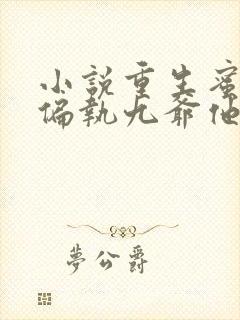 小說重生蜜
偏執九爺他
夢公爵